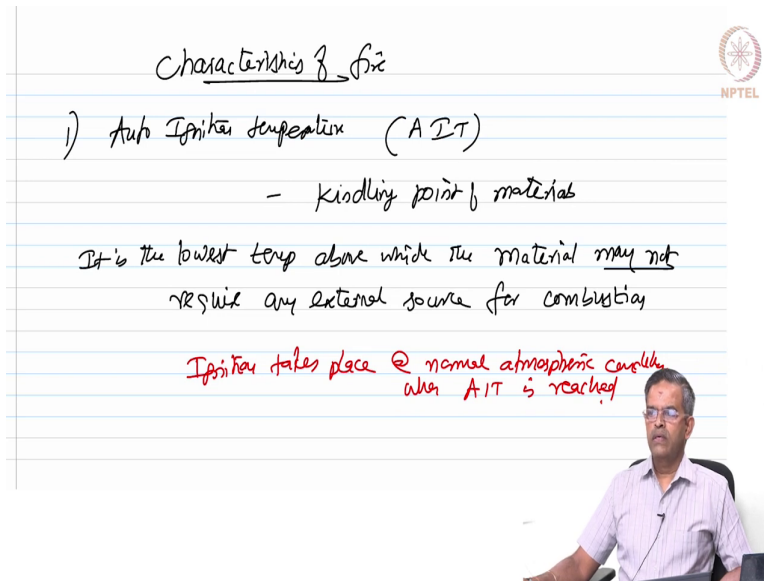 Characteristics of fire
NPTEL
1) Auto Ignition temperature (AIT)
- Kindling point of materials
It is the lowest temp above which the material may not
require any external source for combustion
Ignition takes place @ normal atmospheric condition
when AIT is reached.